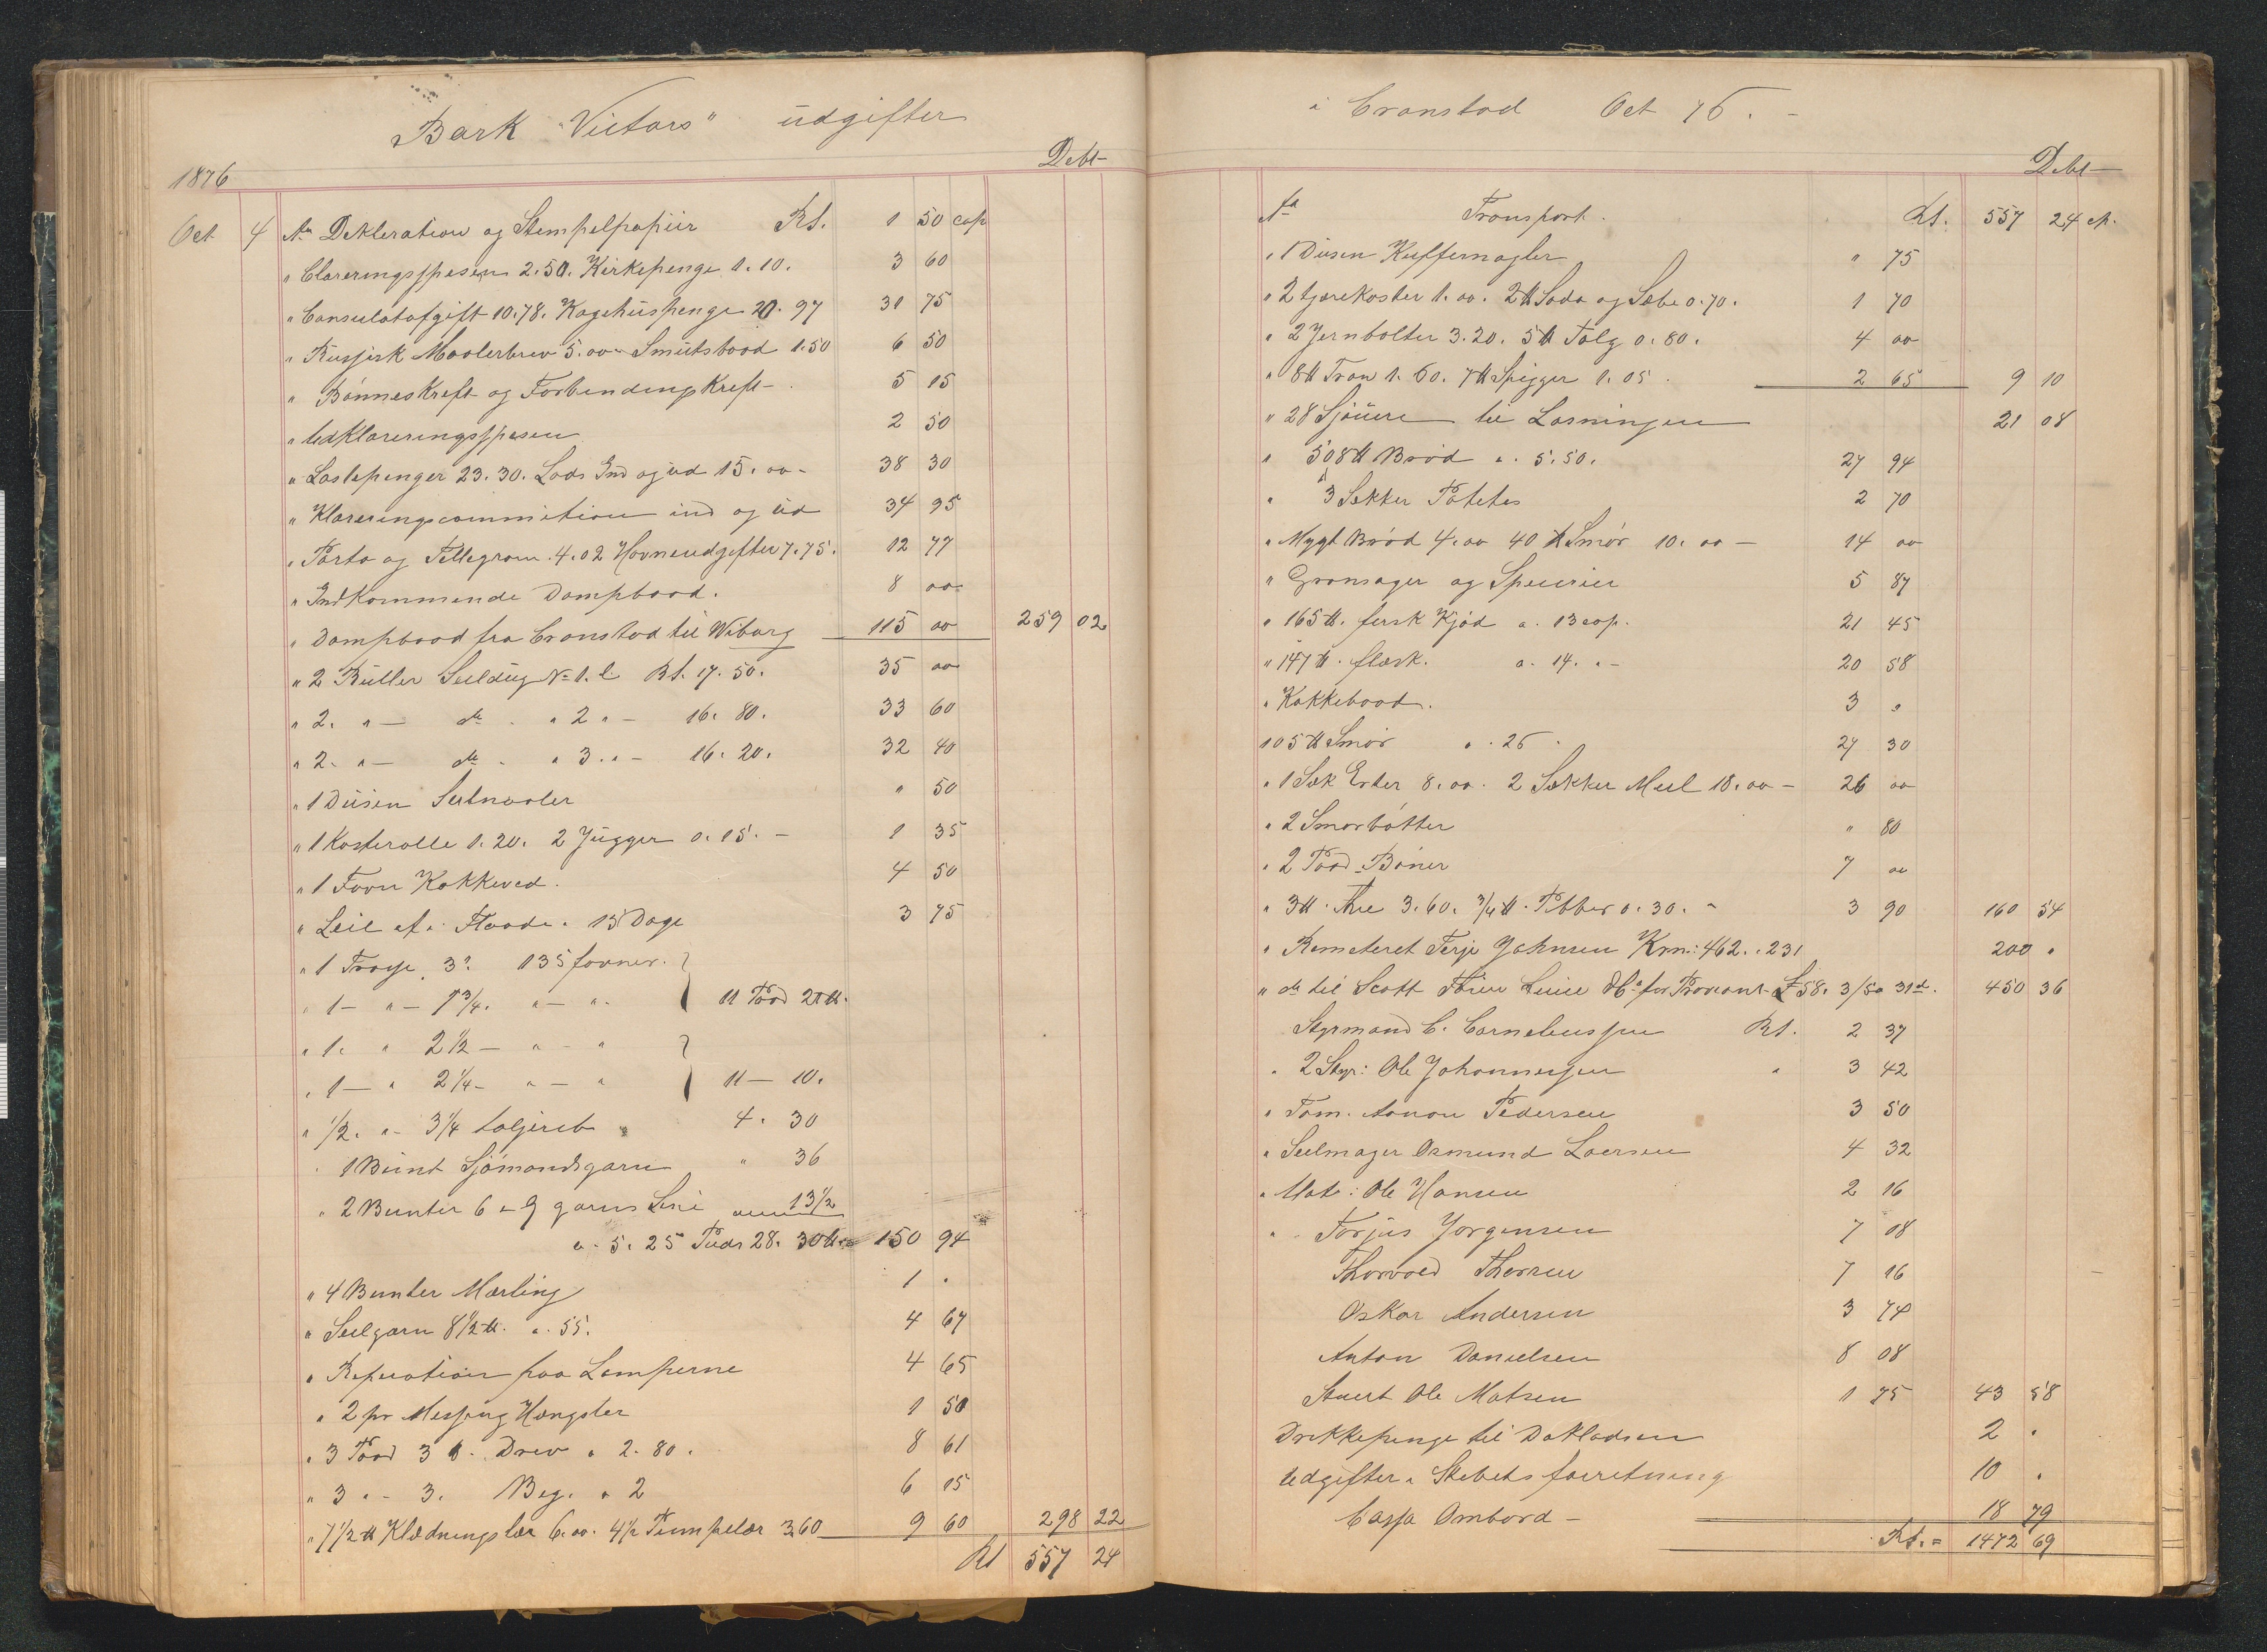 Bark "Victors" udgifter
Debt
1876
Oct 4 An Dekleration og Stempelpapiir Rf. 1 50 cop
" Clareringsspesen 2.50. Kirkepenge 1.10. 3 60
" Consulatafgift 10.78. Kogehuspenge 20.97 31 75
" Russisk Maalerbrev 5.00 Smutsbaad 1.50 6 50
" Bönneskrift og Forbendingskrift 5 15
" Udklareringsspesen 2 50
" Lastepenger 23.30. Lods Ind og ud 15.00 38 30
" Klareringscommition ind og ud 34 95
" Porto og Tellegram 4.02 Havneudgifter 7.75. 12 77
" Indkommende Dampbaad. 8 00
" Dampbaad fra Cronstad til Wiborg 115 00 259 02
" 2 Ruller Seildug No 1. a Rf. 17.50. 35 00
" 2. " — do " 2 " — 16.80. 33 60
" 2. " — do " 3. " — 16.20. 32 40
" 1 Dusen Seilnaaler " 50
" 1 Kasterolle 1.20. 2 Jugger 0.15. — 1 35
" 1 Favn Kokkeved. 4 50
" Leie af Flaade. 15 Dage 3 75
" 1 Trosse 3? 135 favner.
" 1 — " — 1 3/4. " — " 11 Pood 20 ℔.
" 1. " 2 1/2 — " — "
" 1 — " 2 1/4 — " — " 11 — 10.
" 1/2. " — 3 1/4 taljereb 4. 30
" 1 Bunt Sjömandsgarn " 36
" 2 Bunter 6 — 9 garns Line 13 1/2
a. 5.25 Puds 28. 30 ℔. 150 94
" 4 Bunter Merling 1 "
" Seilgarn 8 1/2 ℔. a. 55. 4 67
" Reperation paa Lamperne 4 65
" 2 pr Messing Hengsler 1 50
" 3 Pood 3 ℔. Drev a 2.80. 8 61
" 3 " — 3. Beg. a 2 6 15
" 7 1/2 ℔ Klædningslær 6.00. 4 1/2 Pumpelær 3.60 9 60 298 22
Rf 557 24
i Cronstad Oct 76. —
Debt
An Transport. Rf. 557 24 cp.
" 1 Dusen Kuffernagler " 75
" 2 tjærekoster 1.00. 2 ℔ Soda og Sæbe 0.70. 1 70
" 2 Jernbolter 3.20. 5 ℔ Talg 0.80. 4 00
" 8 ℔ Tran 1.60. 7 ℔ Spigger 1.05. 2 65 9 10
" 28 Sjöuere til Losningen 21 08
" 508 ℔ Bröd a. 5.50. 27 94
" 3 Sekker Potetes 2 70
" Mygt Bröd 4.00 40 ℔ Smör 10.00 — 14 00
" Grönsager og Specerier 5 87
" 165 ℔. fersk Kjöd a. 13 cop. 21 45
" 147 ℔. flæsk. a. 14. " — 20 58
" Kokkebaad. 3 "
105 ℔ Smör a. 26. 27 30
" 1 Sæk Erter 8.00. 2 Sekker Meel 18.00 — 26 00
" 2 Smörbötter " 80
" 2 Pood Böner 7 00
" 3 ℔. The 3.60. 3/4 ℔. Pebber 0.30. — 3 90 160 54
" Remeteret Terje Johnsen Krn: 462. 231 200 "
" do til Scott for Proviant £ 58. 3/5 a 31d. 450 36
Styrmand C. Corneliussen Rf. 2 37
" 2 Styr: Ole Johannessen " 3 42
" Töm. Aanon Pedersen 3 50
" Seilmager Osmund Laersen 4 32
" Mat: Ole Hansen 2 16
" Torjus Jorgensen 7 08
Thorvald Thorsen 7 16
Oskar Andersen 3 74
Anton Danielsen 8 08
Stuert Ole Matsen 1 75 43 58
Drikkepenge til Dokladsen 2 "
Udgifter i Skebets forretning 10 "
Cassa Ombord — 18 79
Rf. = 1472 69